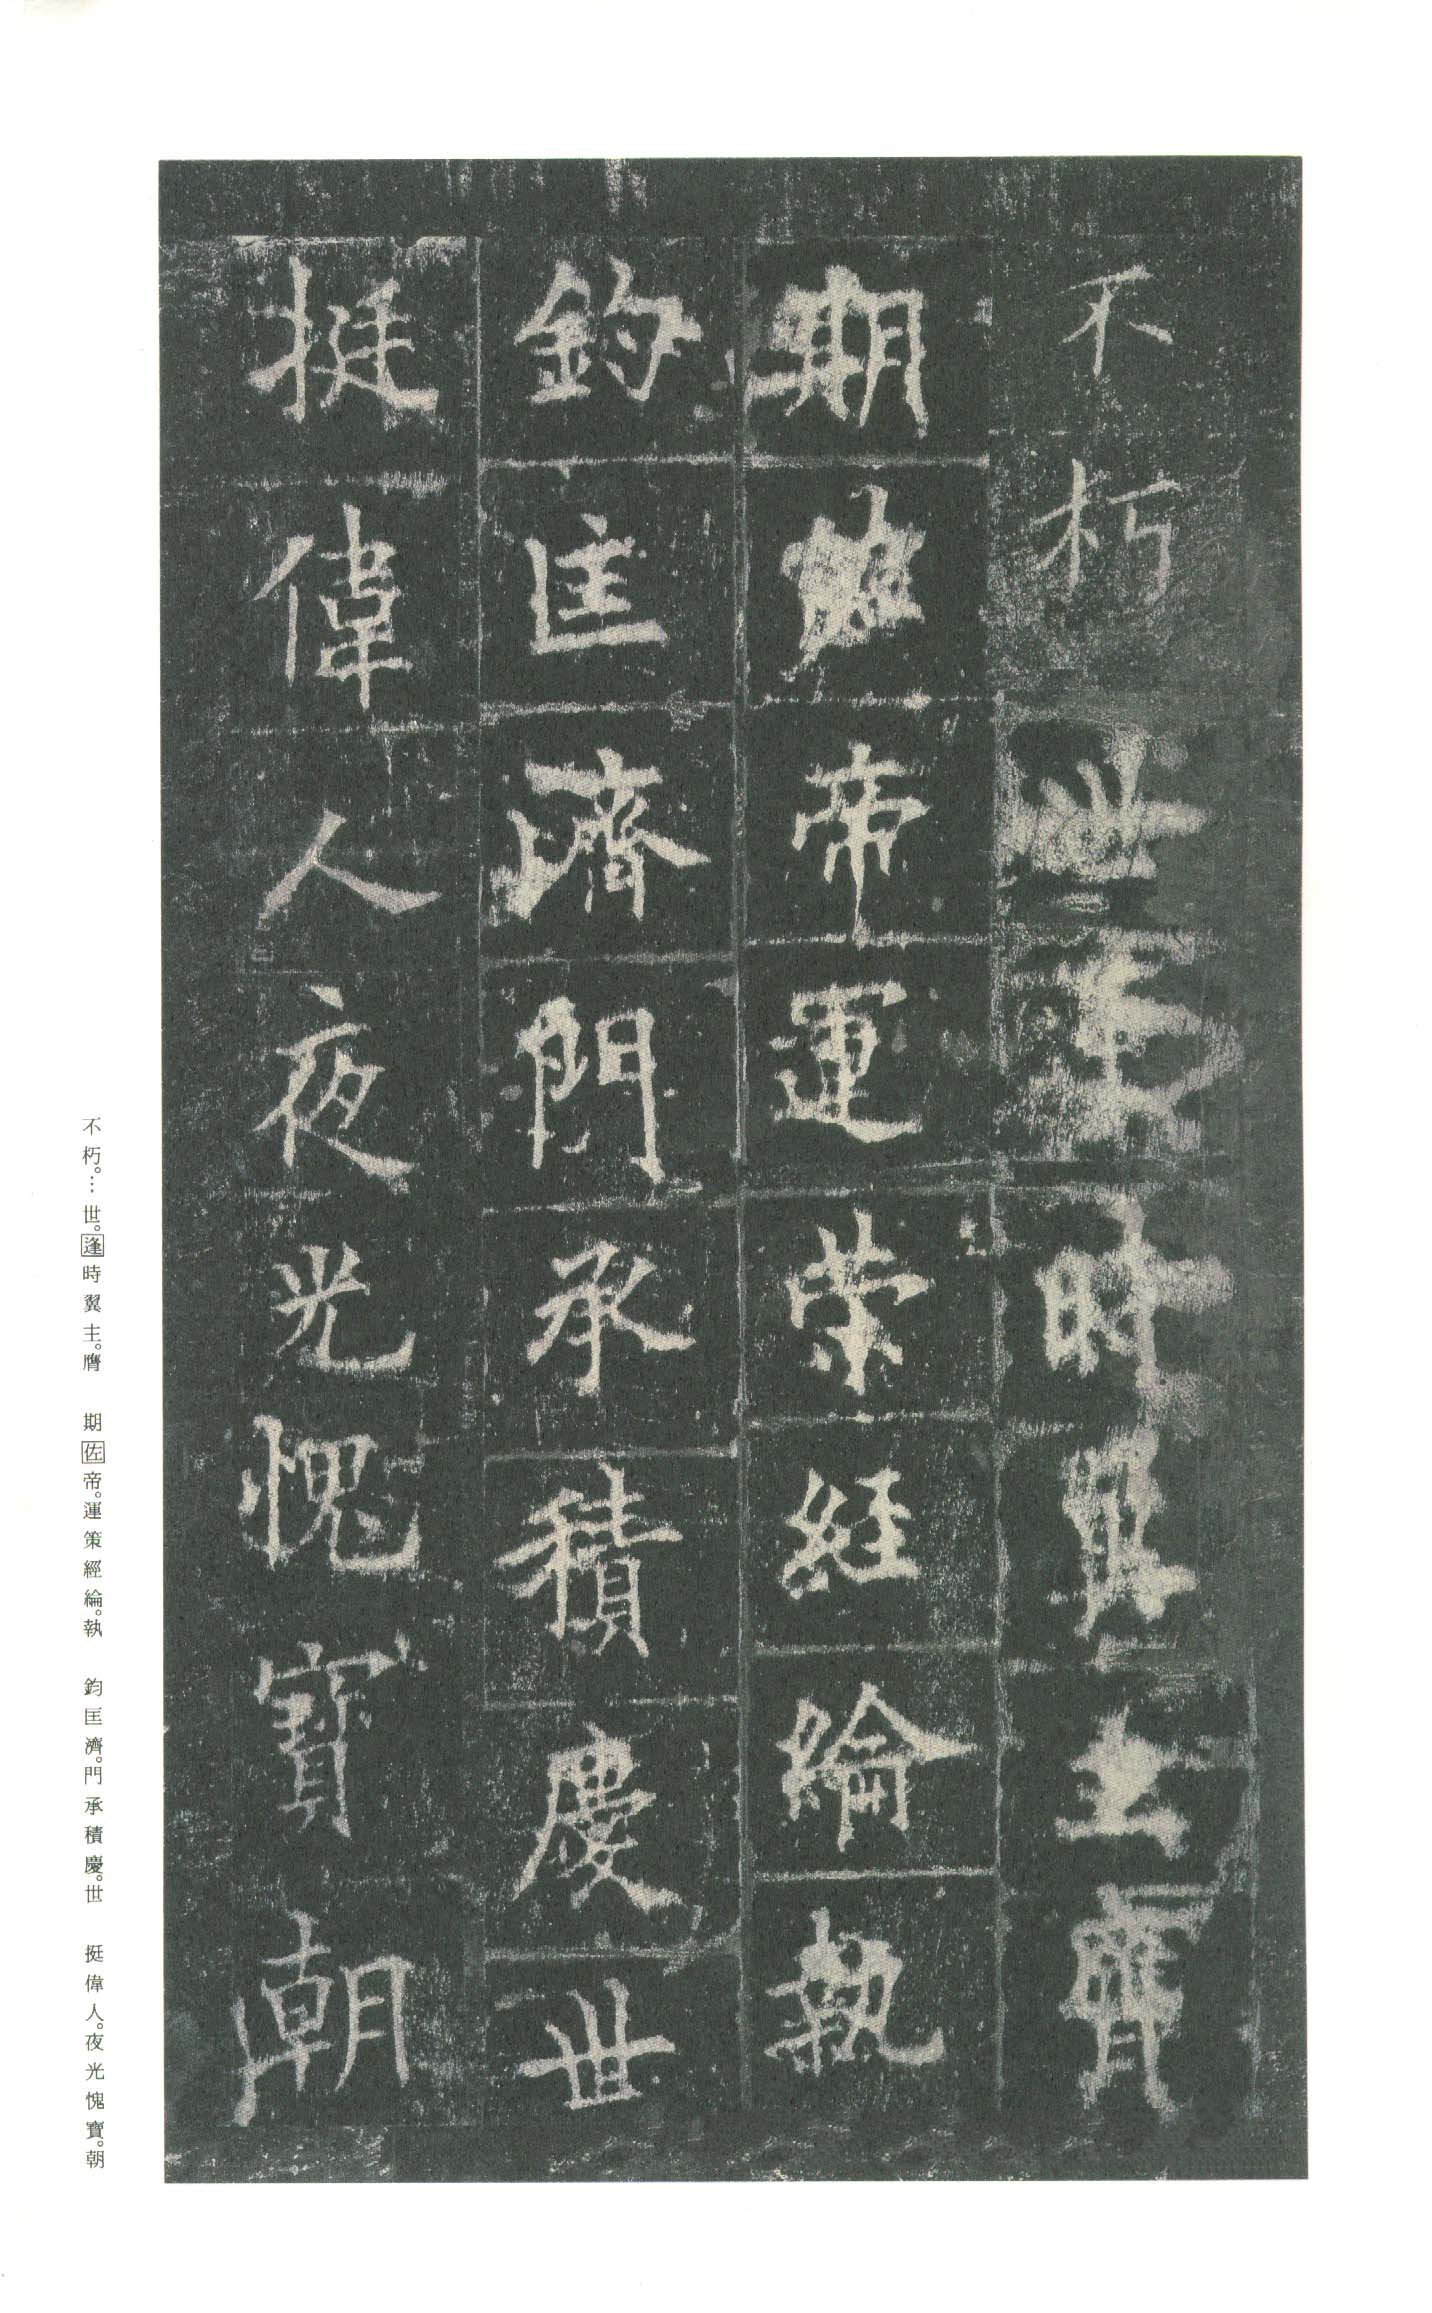 不朽世時翼主膺
期帝運策経綸執
鈞匡濟門承積慶世
挺偉人夜光愧寳朝
不朽。…世。逢時翼主。膺　期佐帝。運策經綸。執　鈞匡濟。門承積慶。世　挺偉人。夜光愧寶。朝